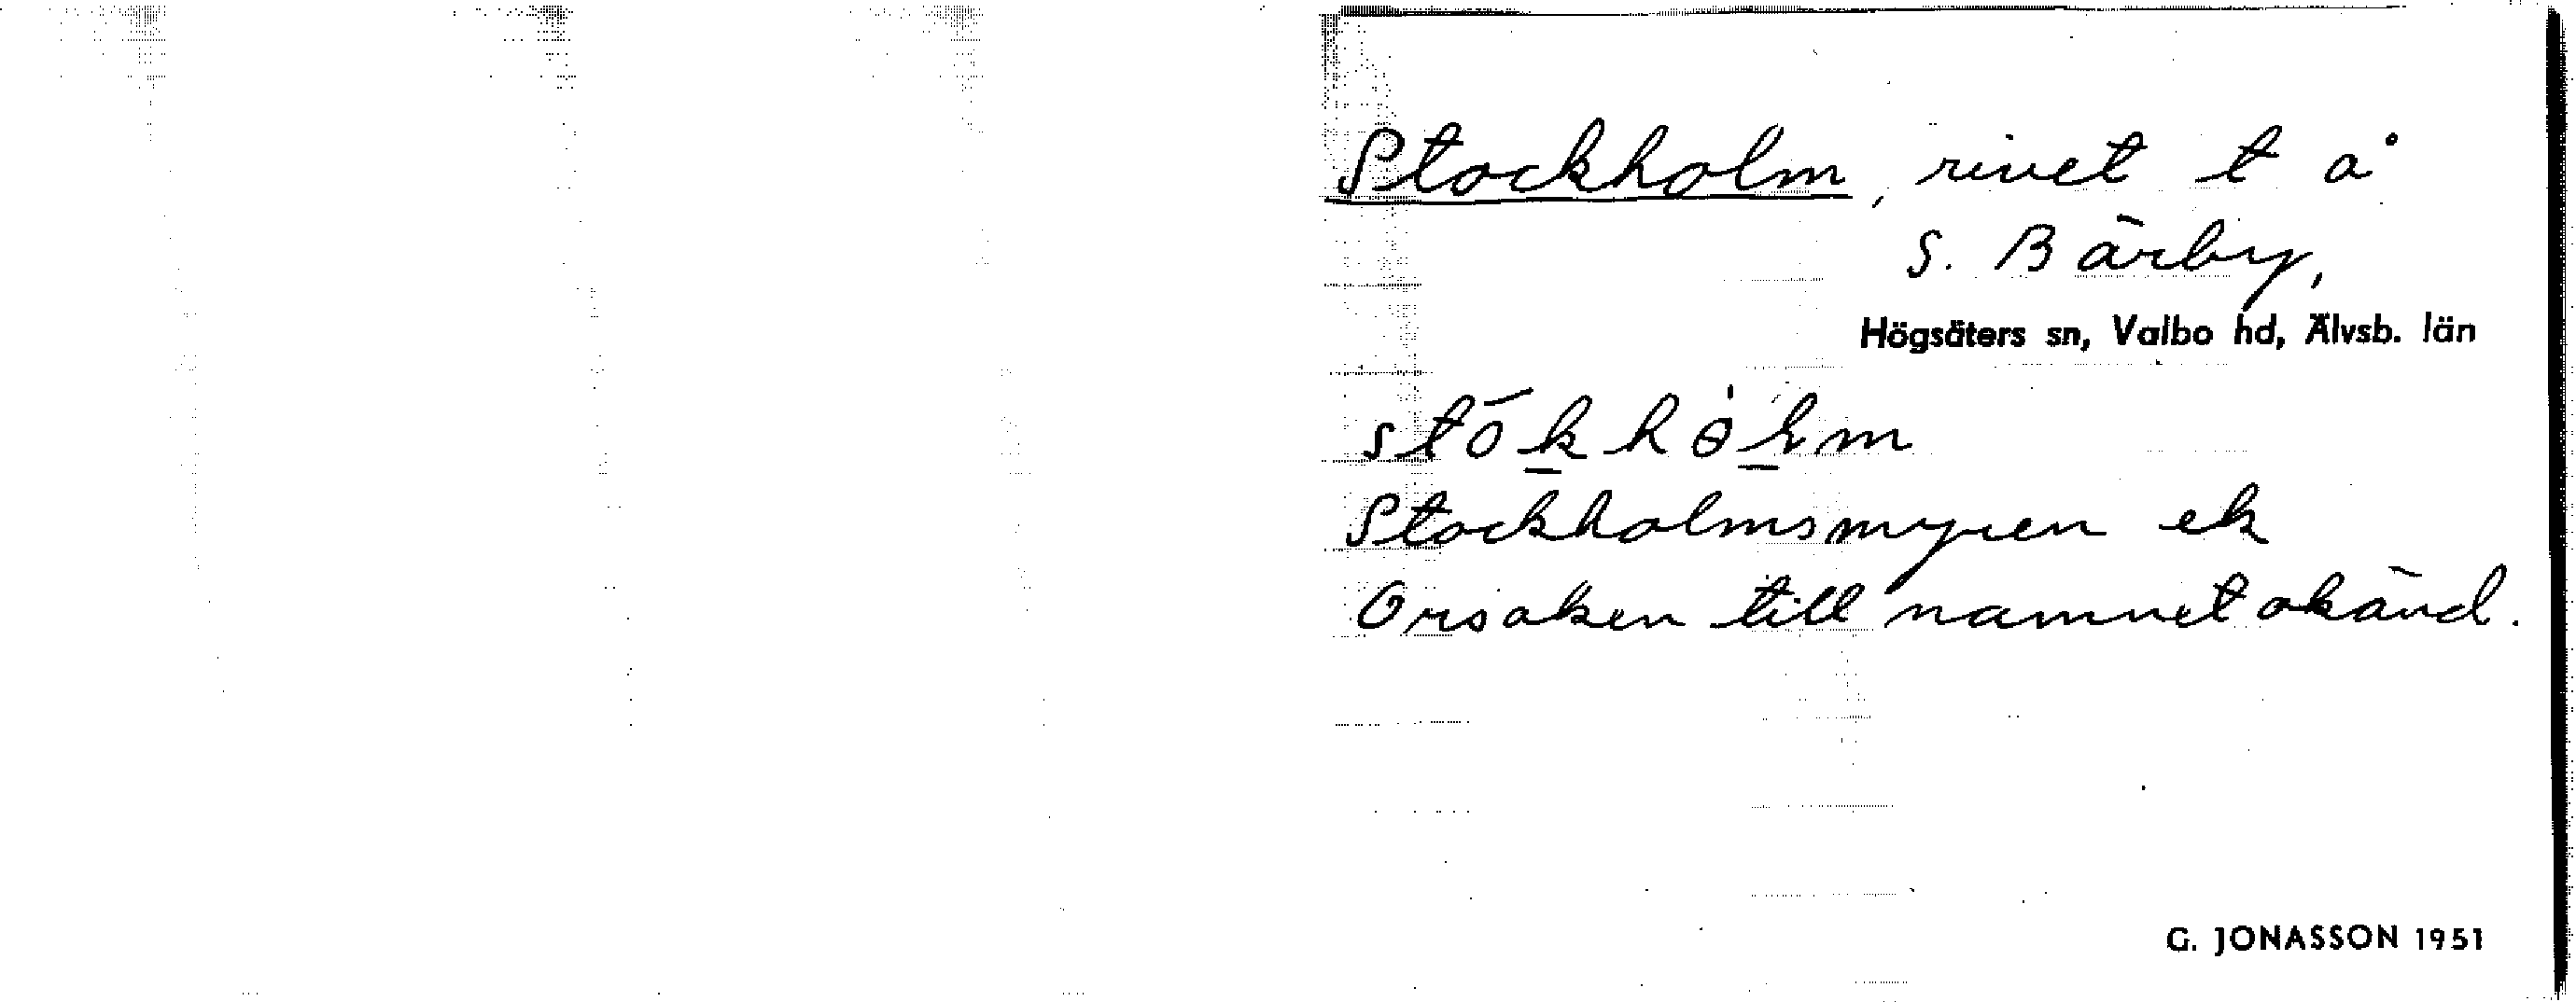 Stockholm, rivet t å
S. Bärby,
Högsäters sn, Valbo hd, Älvsb. län
Stockholmsmyren ek
Orsaken till namnet okänd.
G. JONASSON 1951